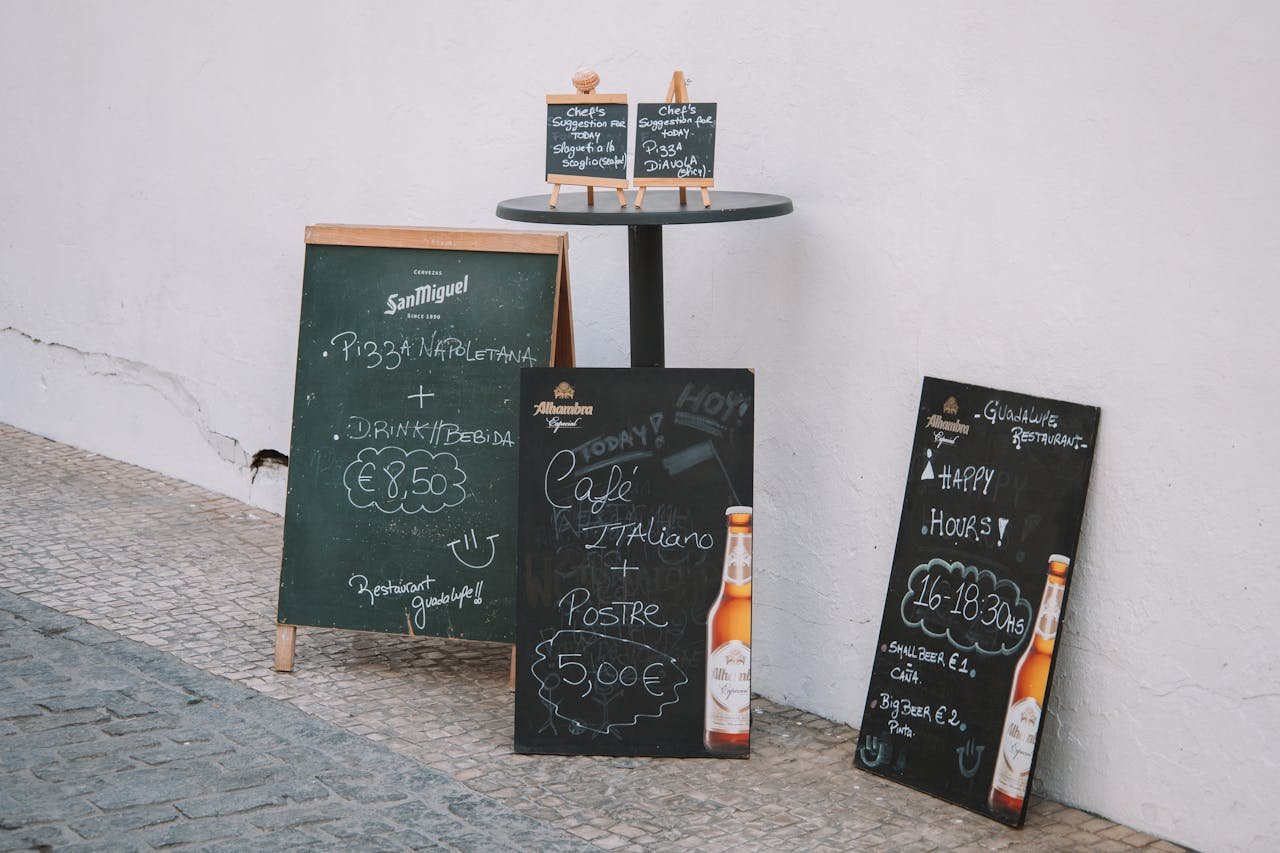 Chef's
Suggestion For
TODAY
Slagueti a lo
Scoglio (seafood)
Chef's
Suggestion for
TODAY.
Pizza
DiAVOLA
(spicy).
CERVEZAS
SanMiguel
SINCE 1890
. Pizza NAPOLETANA
+
. DRINK//BEBIDA
€8,50
Restaurant
guadalupe!!
Alhambra
Especial
HOY!
TODAY!
Café
ITAliano
+
POSTRE
5,00€
Alhambra
Especial
Alhambra
Especial
-GUADALUPE
RESTAURANT-
HAPPY
HOURS!
16-18:30HS
. SMALL BEER €1.
CAÑA.
. Big BEER € 2.
Pinta.
Alhambra
Especial